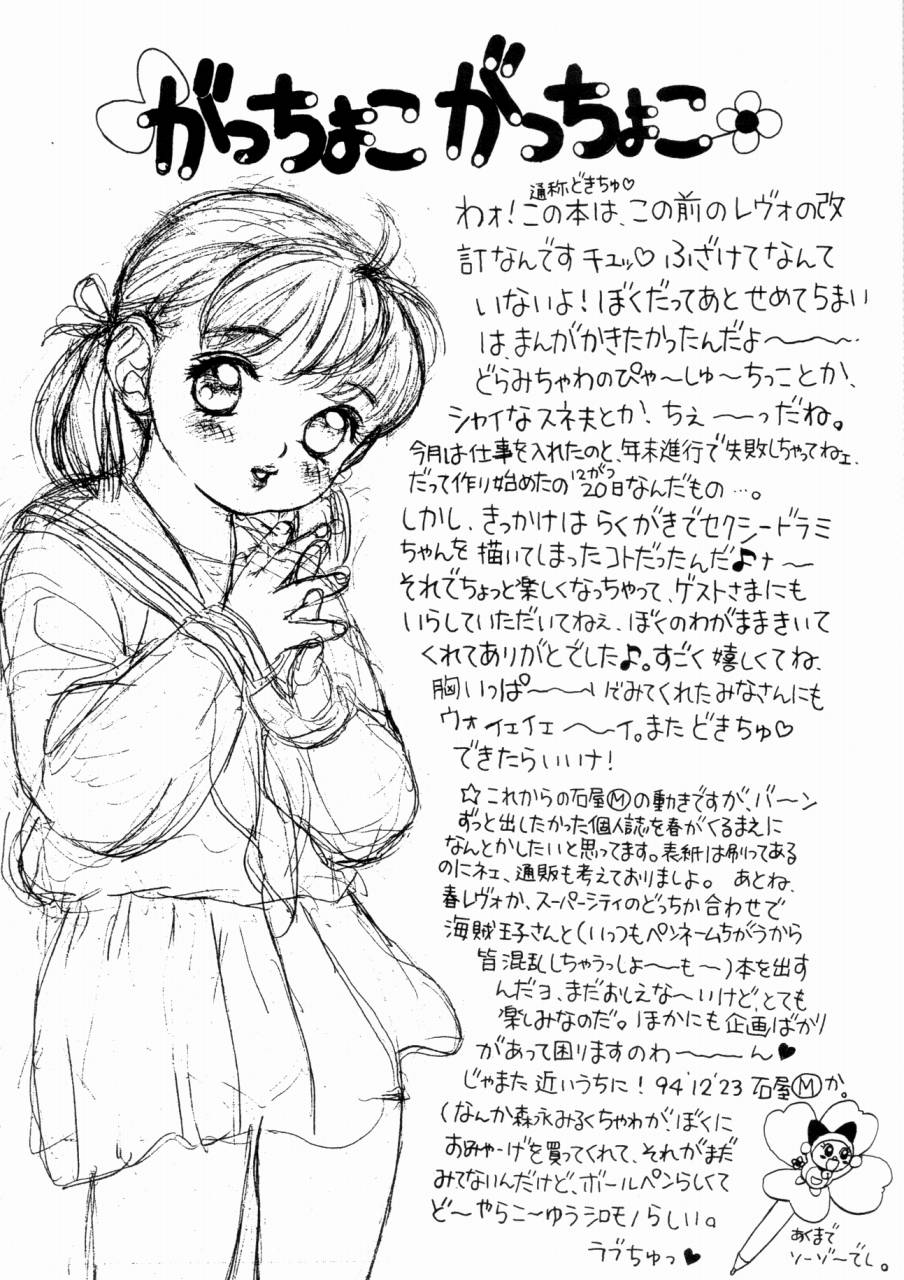 がっちょこ がっちょこ
通称どきちゅ♡
わォ！この本は、この前のレヴォの改
訂なんです チュッ♡ ふざけてなんて
いないよ！ぼくだってあと せめてらまい
は、まんがかきたかったんだよ〜〜〜…
どらみちゃわのぴゃ〜しゅ〜ちっことか、
シャイなスネ夫とか、ちぇ〜〜っだね。
今月は仕事を入れたのと、年末進行で失敗しちゃってねェ、
だって作り始めたの12がつ20日なんだもの…。
しかし、きっかけは らくがきでセクシードラミ
ちゃんを描いてしまったコトだったんだ♪ナ〜
それでちょっと楽しくなっちゃって、ゲストさまにも
いらしていただいてねぇ、ぼくのわがままきいて
くれてありがとでした♪。すごく嬉しくてね、
胸いっぱ〜〜いだみてくれたみなさんにも
ウォィェイェ〜〜イ。また どきちゅ♡
できたらいいナ！
☆これからの石屋Ⓜの動きですが、バ〜ン
ずっと出したかった個人誌を春がくるまえに
なんとかしたいと思ってます。表紙は刷ってある
のにネェ、通販も考えておりましよ。 あとね、
春レヴォか、スーパーシティのどっちか合わせで
海賊王子さんと（いっつもペンネームちがうから
皆混乱しちゃうっしょ〜〜も〜）本を出す
んだヨ、まだおしえな〜いけど、とても
楽しみなのだ。ほかにも企画ばかり
があって困りますのわ〜〜〜ん♥
じゃまた近いうちに！94'12'23 石屋Ⓜか。
（なんか森永みるくちゃわが、ぼくに
おみゃーげを買ってくれて、それがまだ
みてないんだけど、ボールペンらしくて
ど〜やらこ〜ゆうシロモノらしい。
ラブちゅっ♥
あくまで
ソーゾ〜でし。